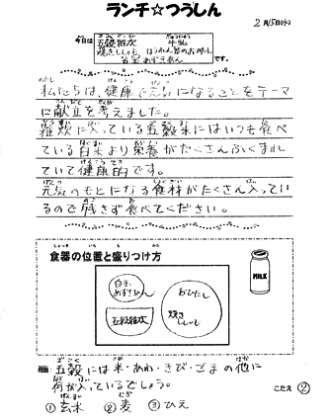 ランチ☆つうしん
2月15日
今日は
五穀雑炊 牛乳
焼きししゃも ほうれん草のおひたし
白玉あずきあん
です。
私たちは、健康で元気になることをテーマ
に献立を考えました。
雑炊に入っている五穀米にはいつも食べ
ている白米より栄養がたくさんふくまれ
ていて健康的です。
元気のもとになる食材がたくさん入ってい
るので残さず食べてください。
食器の位置と盛りつけ方
白玉
あずきあん
おひたし
五穀雑炊
焼き
ししゃも
MILK
五穀には米・あわ・きび・ごまの他に
何が入っているでしょう。
①玄米 ②麦 ③ひえ
こたえ ②